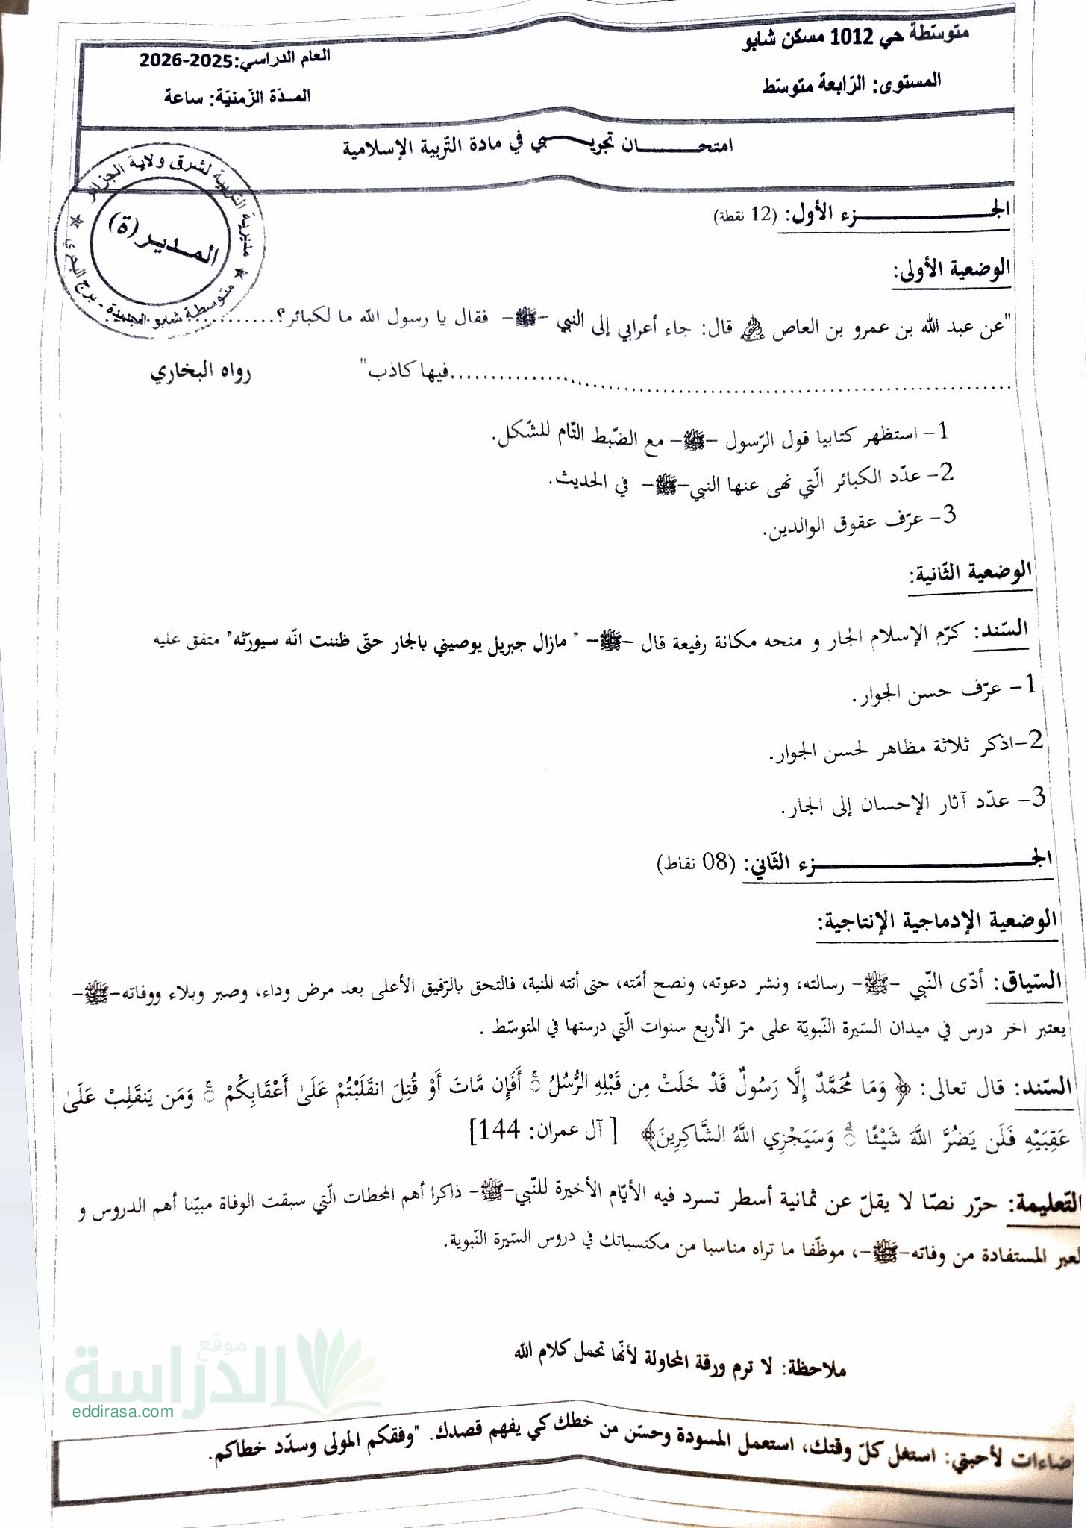 متوسّطة حي 1012 مسكن شابو
العام الدراسي:2025-2026
المستوى: الرّابعة متوسّط
المدّة الزّمنيّة: ساعة
امتحـــــــان تجريـــــبي في مادة التّربية الإسلامية
مديرية التربية لشرق ولاية الجزائر
المدير(ة)
الجـــــــــــــــزء الأول: (12 نقطة)
الوضعية الأولى:
"عن عبد الله بن عمرو بن العاص ﷺ قال: جاء أعرابي إلى النبي -ﷺ- فقال يا رسول الله ما لكبائر؟............
................................................................فيها كاذب" رواه البخاري
1- استظهر كتابيا قول الرّسول -ﷺ- مع الضّبط التّام للشّكل.
2- عدّد الكبائر الّتي نهى عنها النبي-ﷺ- في الحديث.
3- عرّف عقوق الوالدين.
الوضعية الثّانية:
السّند: كرّم الإسلام الجار و منحه مكانة رفيعة قال -ﷺ- " مازال جبريل يوصيني بالجار حتّى ظننت انّه سيورّثه" متفق عليه
1- عرّف حسن الجوار.
2-اذكر ثلاثة مظاهر لحسن الجوار.
3- عدّد آثار الإحسان إلى الجار.
الجـــــــــــــــزء الثّاني: (08 نقاط)
الوضعية الإدماجية الإنتاجية:
السّياق: أدّى النّبي -ﷺ- رسالته، ونشر دعوته، ونصح أمّته، حتى أتته المنية، فالتحق بالرّفيق الأعلى بعد مرض وداء، وصبر وبلاء ووفاته-ﷺ-
يعتبر اخر درس في ميدان السّيرة النّبويّة على مرّ الأربع سنوات الّتي درستها في المتوسّط .
السّند: قال تعالى: ﴿ وَمَا مُحَمَّدٌ إِلَّا رَسُولٌ قَدْ خَلَتْ مِن قَبْلِهِ الرُّسُلُ ۚ أَفَإِن مَّاتَ أَوْ قُتِلَ انقَلَبْتُمْ عَلَىٰ أَعْقَابِكُمْ ۚ وَمَن يَنقَلِبْ عَلَىٰ
عَقِبَيْهِ فَلَن يَضُرَّ اللَّهَ شَيْئًا ۗ وَسَيَجْزِي اللَّهُ الشَّاكِرِينَ﴾ [ آل عمران: 144]
التّعليمة: حرّر نصّا لا يقلّ عن ثمانية أسطر تسرد فيه الأيّام الأخيرة للنّبي-ﷺ- ذاكرا أهم المحطات الّتي سبقت الوفاة مبيّنا أهم الدروس و
لعبر المستفادة من وفاته-ﷺ-، موظّفا ما تراه مناسبا من مكتسباتك في دروس السّيرة النّبوية.
ملاحظة: لا ترم ورقة المحاولة لأنّها تحمل كلام الله
موقع الدراسة
eddirasa.com
ضاءات لأحبتي: استغل كلّ وقتك، استعمل المسودة وحسّن من خطك كي يفهم قصدك. "وفقكم المولى وسدّد خطاكم.